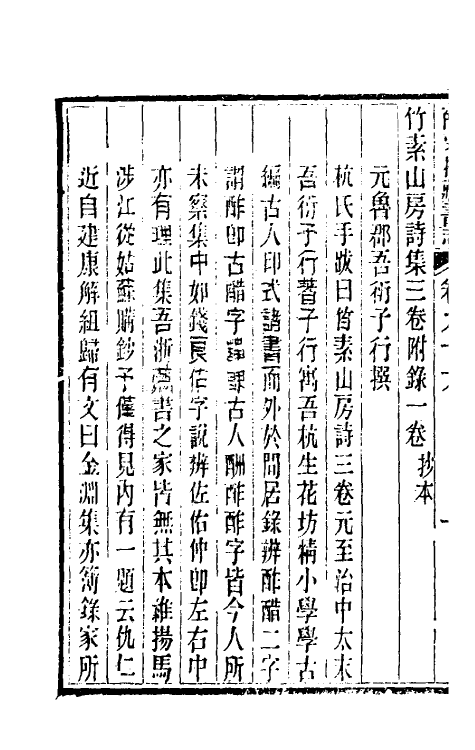 竹素山房詩集三卷附錄一卷 抄本
元魯郡吾衍子行撰
杭氏手跋曰竹素山房詩三卷元至治中太末
吾衍子行著子行寓吾杭生花坊精小學學古
編古人印式諸書而外於間居錄辨酢醋二字
謂酢卽古醋字謬謬古人酬酢酢字皆今人所
未察集中如錢良佑字說辨佐佑仲卽左右中
亦有理此集吾浙藏書之家皆無其本維揚馬
涉江從姑蘇購鈔予僅得見內有一題云仇仁
近自建康解組歸有文曰金淵集亦箭錄家所